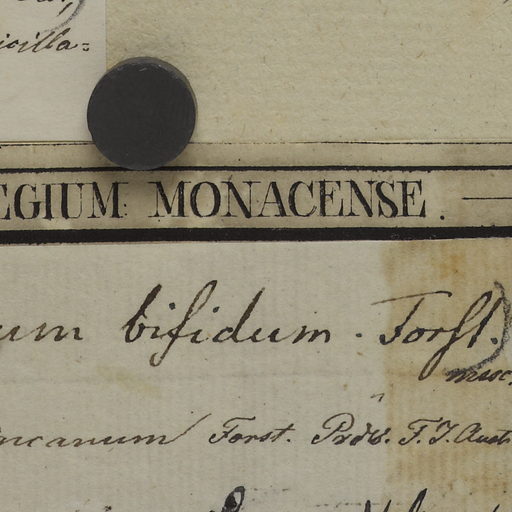 icilla=
EGIUM MONACENSE.
um bifidum. Forst.
ncanum Forst. Prdr. F. I. Austr